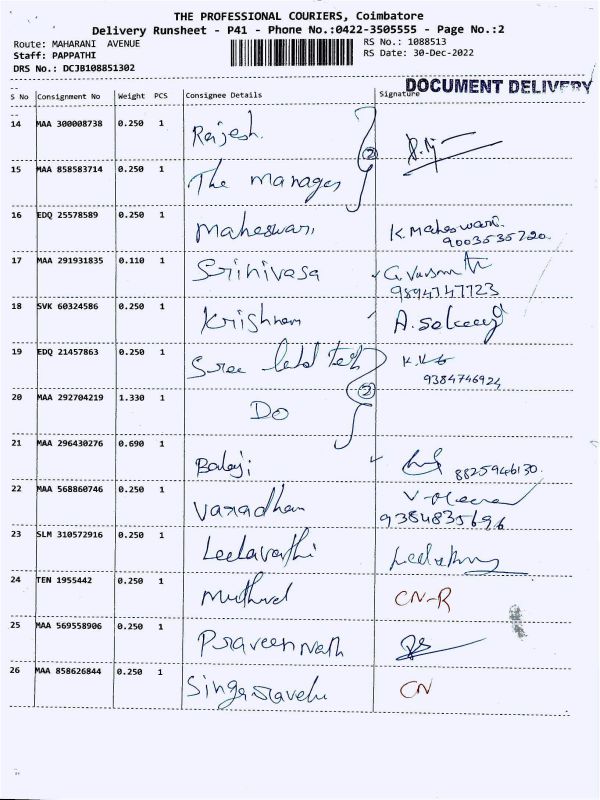 THE PROFESSIONAL COURIERS, Coimbatore
Delivery Runsheet - P41 - Phone No.:0422-3505555 - Page No.:2
Route: MAHARANI AVENUE
Staff: PAPPATHI
DRS No.: DCJB108851302
RS No.: 1088513
RS Date: 30-Dec-2022
DOCUMENT DELIVERY
S No Consignment No Weight PCS Consignee Details Signature
14 MAA 300008738 0.250 1 Rajesh.
2
15 MAA 858583714 0.250 1 The manager
16 EDQ 25578589 0.250 1 Maheswari K. Maheswari.
9003535720
17 MAA 291931835 0.110 1 Srinivasa G. Vasan
9894747723
18 SVK 60324586 0.250 1 Krishnan
19 EDQ 21457863 0.250 1 Sree Tech
9384746924
20 MAA 292704219 1.330 1 Do 2
21 MAA 296430276 0.690 1 Balaji
8825946130.
22 MAA 568860746 0.250 1 Varadhan
9384835696
23 SLM 310572916 0.250 1 Leelavathi
24 TEN 1955442 0.250 1 Muthuvel CN-R
25 MAA 569558906 0.250 1 Praveen nath
26 MAA 858626844 0.250 1 Singaravelu CN